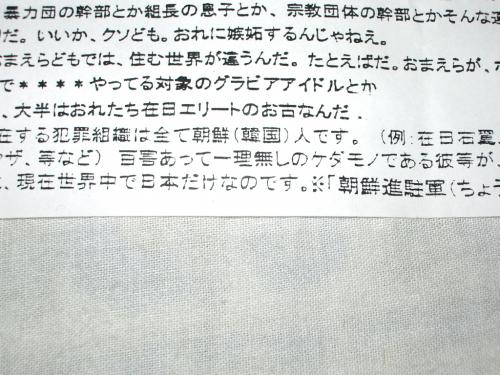 暴力団の幹部とか組長の息子とか、宗教団体の幹部とかそんな
だ。いいか、クソども。おれに嫉妬するんじゃねえ。
おまえらどもでは、住む世界が違うんだ。たとえばだ。おまえらが、
で＊＊＊＊やってる対象のグラビアアイドルとか
、大半はおれたち在日エリートのお古なんだ．
在する犯罪組織は全て朝鮮(韓国)人です。（例：在日右翼、
ヤクザ、等など） 百害あって一理無しのケダモノである彼等が、
、現在世界中で日本だけなのです。※「朝鮮進駐軍(ちょう